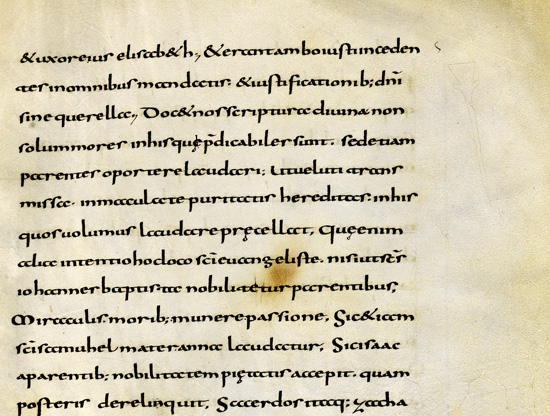 &uxoreius elisab&h, &erantamboiustiinceden
tesinomnibus mandatis &iustificationib; dn̄i
sine querella, Doc&nosscriptura diuina non
solummores inhisquę p̄dicabiles sunt. sedetiam
parentes oportere laudari; Utueluti trans
missa inmaculate puritatis hereditas. inhis
quosuolumus laudare pręcellat, Quęenim
alia intentio hocloco sc̄ieuangeliste. nisiut sc̄s
iohannes baptista nobilitetur parentibus,
Miraculis. morib; munere passione, Sic&iam
sc̄isamuhel mater anna laudatur; Sicisaac
aparentib; nobilitatem pi&atis accepit. quam
posteris derelinquit, Sacerdos itaq; zacha